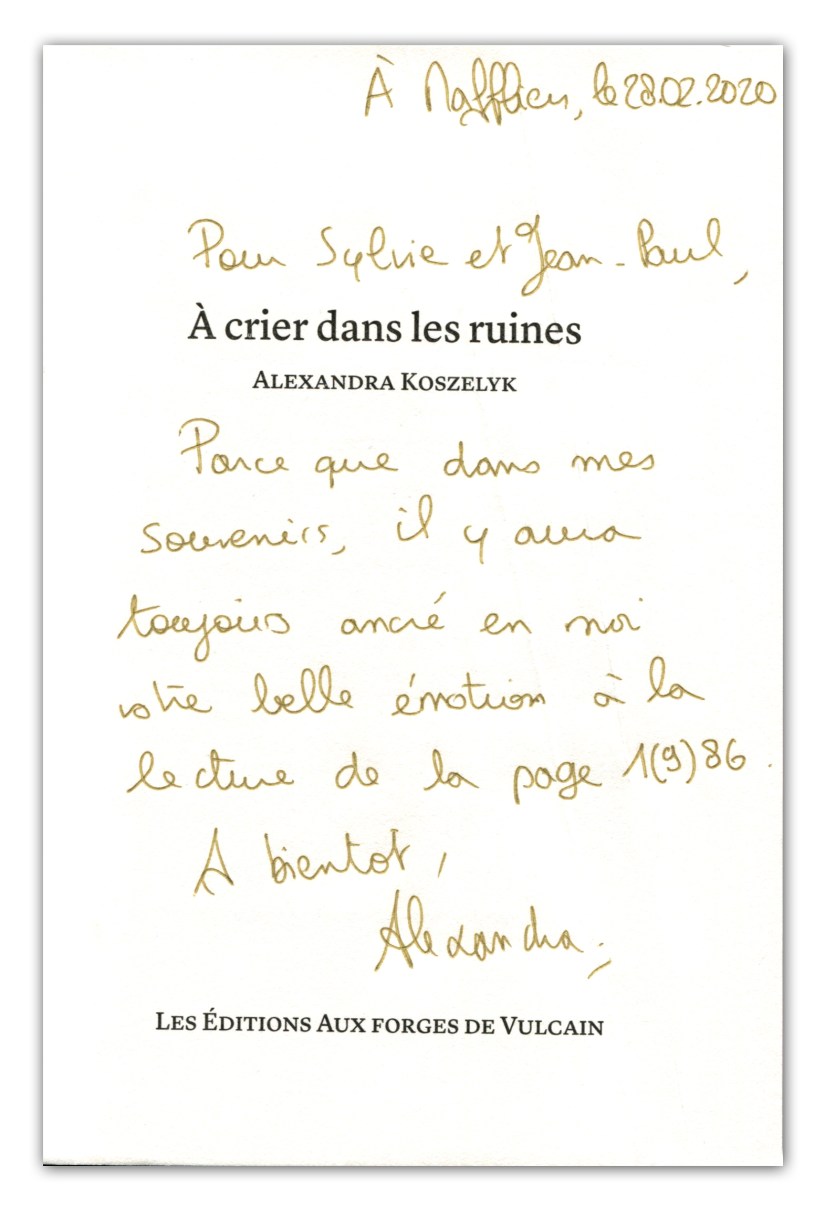 À Maffliers, le 28.02.2020
Pour Sylvie et Jean-Paul,
À crier dans les ruines
Alexandra Koszelyk
Parce que dans mes
souvenirs, il y aura
toujours ancré en moi
votre belle émotion à la
lecture de la page 1(9)86.
A bientôt,
Alexandra
Les Éditions Aux forges de Vulcain